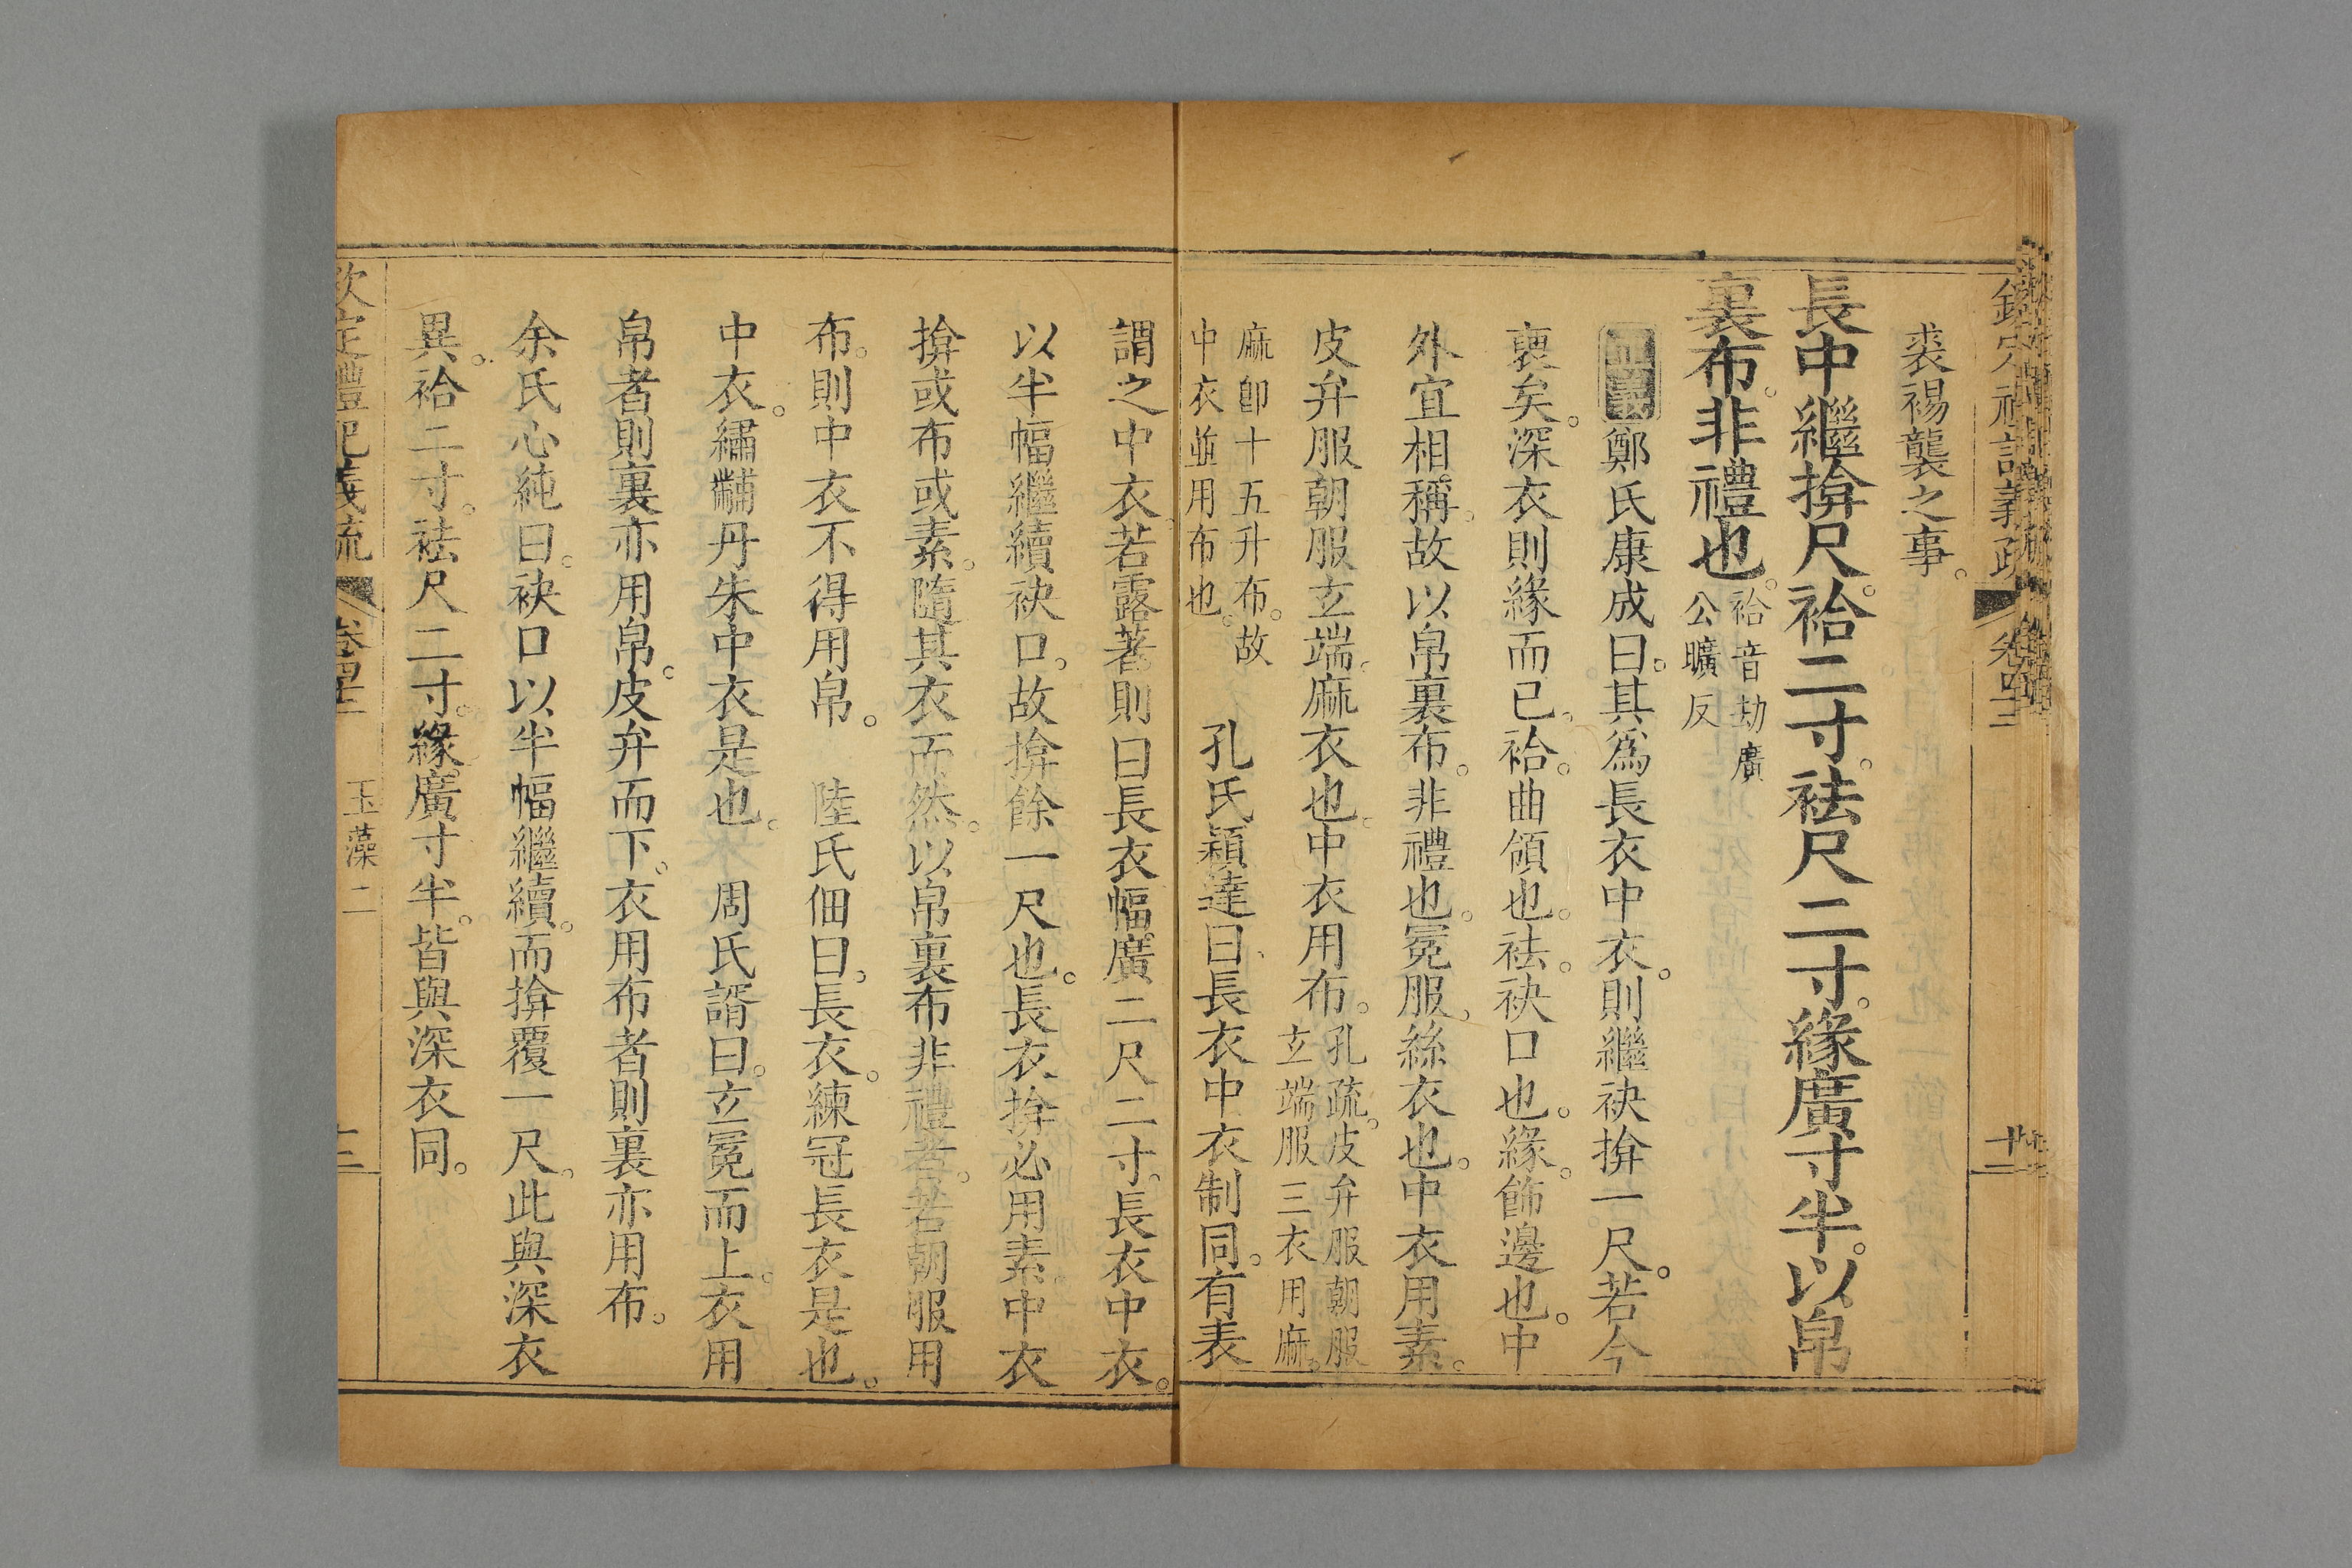 裘裼襲之事。
長中繼揜尺。袷二寸。袪尺二寸。緣廣寸半。以帛
裏布。非禮也。袷音劫廣
公曠反
鄭氏康成曰。其爲長衣中衣。則繼袂揜一尺。若今
褎矣。深衣則緣而已。袷。曲領也。袪。袂口也。緣。飾邊也。中
外宜相稱。故以帛裏布。非禮也。冕服。絲衣也。中衣用素。
皮弁服朝服玄端。麻衣也。中衣用布。孔疏。皮弁服朝服
玄端服三衣用麻。
麻卽十五升布。故
中衣並用布也。
孔氏穎達曰、長衣中衣制同。有表
謂之中衣。若露著。則曰長衣。幅廣二尺二寸。長衣中衣。
以半幅繼續袂口。故揜餘一尺也。長衣揜必用素。中衣
揜或布或素。隨其衣而然。以帛裏布非禮者。若朝服用
布。則中衣不得用帛。 陸氏佃曰。長衣。練冠長衣是也。
中衣。繡黼丹朱中衣是也。 周氏諝曰。玄冕而上。衣用
帛者則裏亦用帛。皮弁而下。衣用布者則裏亦用布。
余氏心純曰。袂口以半幅繼續。而揜覆一尺。此與深衣
異。袷二寸。袪尺二寸。緣廣寸半。皆與深衣同。
欽定禮記義疏 卷四十二 玉藻二